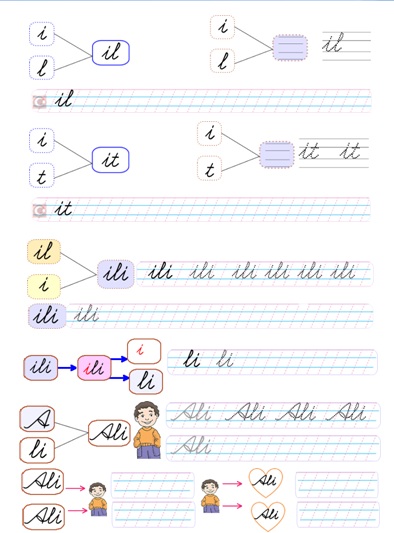 i i
il il
l l
il
i i
it it it
t t
it
il
ili ili ili ili ili ili ili
i
ili ili
i li li
ili ili
li
A Ali Ali Ali Ali
Ali
li Ali
Ali Ali
Ali Ali